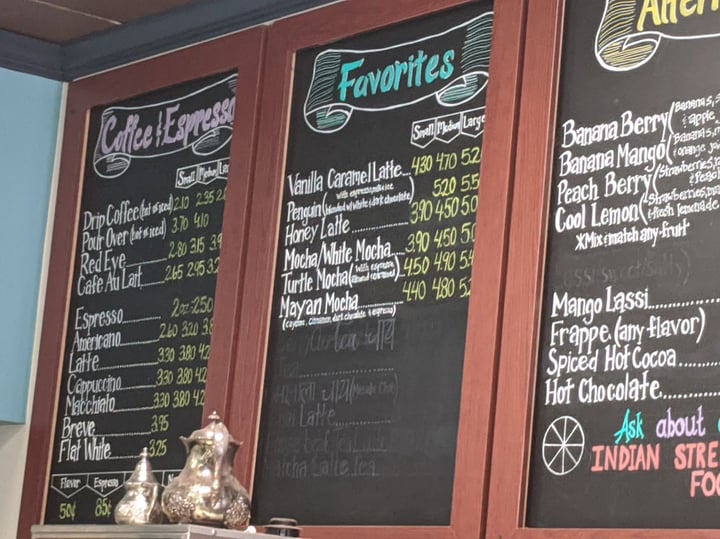 Coffee & Espresso
Small Medium
Drip Coffee (hot or iced) 2.10 2.35
Pour Over (hot or iced) 3.70 4.10
Red Eye 2.80 3.15
Cafe Au Lait 2.65 2.95
Espresso 2oz 2.50
Americano 2.60 3.20
Latte 3.30 3.80
Cappuccino 3.30 3.80
Macchiato 3.30 3.80
Breve 3.95
Flat White 3.25
Flavor Espresso
50¢ 85¢
Favorites
Small Medium Large
Vanilla Caramel Latte 4.30 4.70
with espresso, milk, ice
Penguin (blended w/ white & dark chocolate) 5.20
Honey Latte 3.90 4.50
Mocha/White Mocha 3.90 4.50
Turtle Mocha (with espresso, almond & caramel) 4.50 4.90
Mayan Mocha 4.40 4.80
(cayenne, cinnamon, dark chocolate & espresso)
Latte
Banana Berry (Bananas,
& apple
Banana Mango (Bananas,
& orange
Peach Berry (Strawberries,
Cool Lemon (Strawberries,
& fresh lemonade
*Mix & match any fruit
Mango Lassi
Frappe (any flavor)
Spiced Hot Cocoa
Hot Chocolate
Ask about
INDIAN